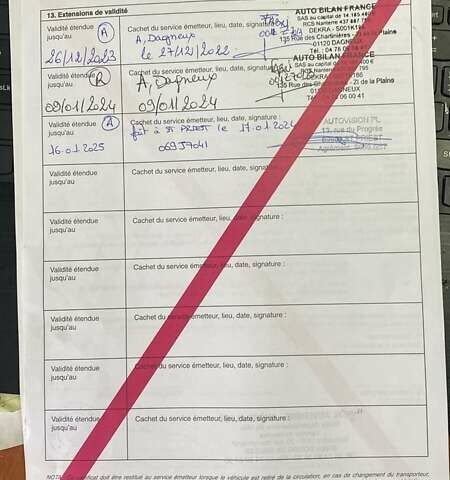 13. Extensions de validité
Validité étendue jusqu'au
A
26/12/2023
Cachet du service émetteur, lieu, date, signature :
A, Dagneux
le 27/12/2022
AUTO BILAN FRANCE
DEKRA
135 Rue des Chartinières - ZI de la Plaine
01120 DAGNEUX
Validité étendue jusqu'au
R
09/01/2024
Cachet du service émetteur, lieu, date, signature :
A, Dagneux
09/01/2024
AUTO BILAN FRANCE
Validité étendue jusqu'au
A
16.01.2025
Cachet du service émetteur, lieu, date, signature :
fait à St PRIEST le 17.01.2024
069J7041
AUTOVISION PL
13, rue du Progrès
Validité étendue jusqu'au
Cachet du service émetteur, lieu, date, signature :
Validité étendue jusqu'au
Cachet du service émetteur, lieu, date, signature :
Validité étendue jusqu'au
Cachet du service émetteur, lieu, date, signature :
Validité étendue jusqu'au
Cachet du service émetteur, lieu, date, signature :
Validité étendue jusqu'au
Cachet du service émetteur, lieu, date, signature :
Validité étendue jusqu'au
Cachet du service émetteur, lieu, date, signature :
doit être restitué au service émetteur lorsque le véhicule est retiré de la circulation, en cas de changement du propriétaire,